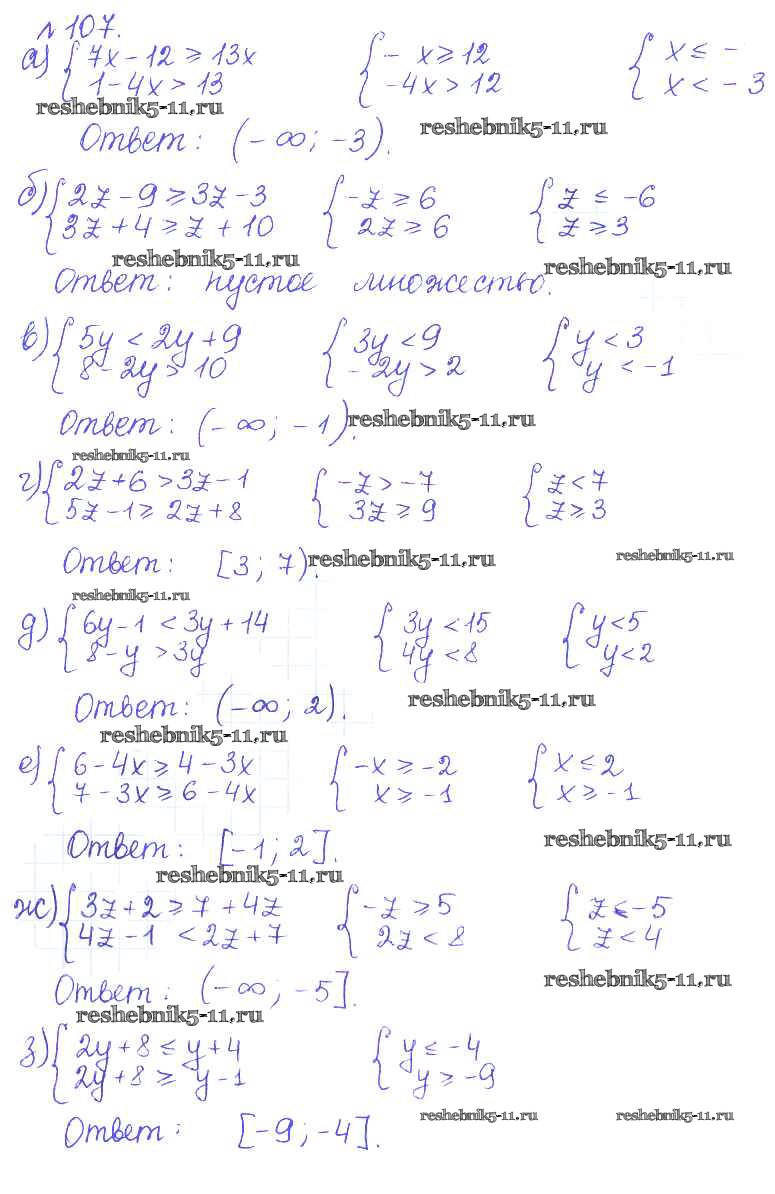 № 107.
а) { 7x - 12 ≥ 13x { - x ≥ 12 { x ≤ -
1 - 4x > 13 -4x > 12 x < - 3
reshebnik5-11.ru
Ответ: (-∞; -3). reshebnik5-11.ru
б) { 2z - 9 ≥ 3z - 3 { -z ≥ 6 { z ≤ -6
3z + 4 ≥ z + 10 2z ≥ 6 z ≥ 3
reshebnik5-11.ru reshebnik5-11.ru
Ответ: пустое множество.
в) { 5y < 2y + 9 { 3y < 9 { y < 3
8 - 2y > 10 - 2y > 2 y < -1
Ответ: (-∞; -1). reshebnik5-11.ru
reshebnik5-11.ru
г) { 2z + 6 > 3z - 1 { -z > -7 { z < 7
5z - 1 ≥ 2z + 8 3z ≥ 9 z ≥ 3
Ответ: [3; 7). reshebnik5-11.ru reshebnik5-11.ru
reshebnik5-11.ru
д) { 6y - 1 < 3y + 14 { 3y < 15 { y < 5
8 - y > 3y 4y < 8 y < 2
Ответ: (-∞; 2). reshebnik5-11.ru
reshebnik5-11.ru
е) { 6 - 4x ≥ 4 - 3x { -x ≥ -2 { x ≤ 2
7 - 3x ≥ 6 - 4x x ≥ -1 x ≥ -1
Ответ: [-1; 2]. reshebnik5-11.ru
reshebnik5-11.ru
ж) { 3z + 2 ≥ 7 + 4z { -z ≥ 5 { z ≤ -5
4z - 1 < 2z + 7 2z < 8 z < 4
Ответ: (-∞; -5]. reshebnik5-11.ru
reshebnik5-11.ru
з) { 2y + 8 ≤ y + 4 { y ≤ -4
2y + 8 ≥ y - 1 y ≥ -9
reshebnik5-11.ru reshebnik5-11.ru
Ответ: [-9; -4].